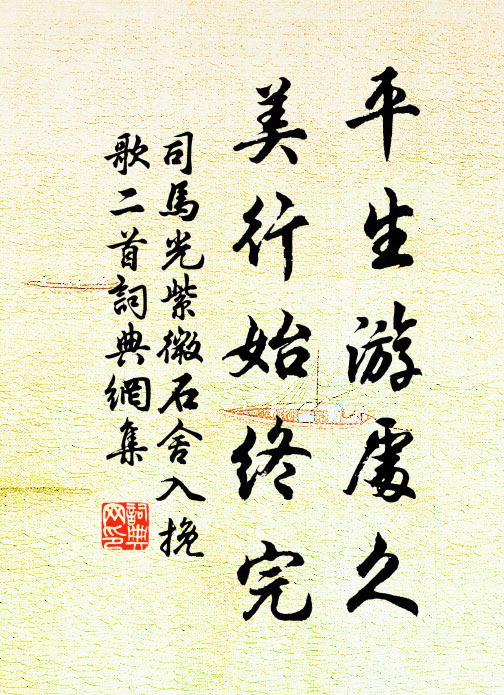 平生游處久
美行始終完
司馬光紫微石舍入挽
歌二首詞典網集
詞典網印